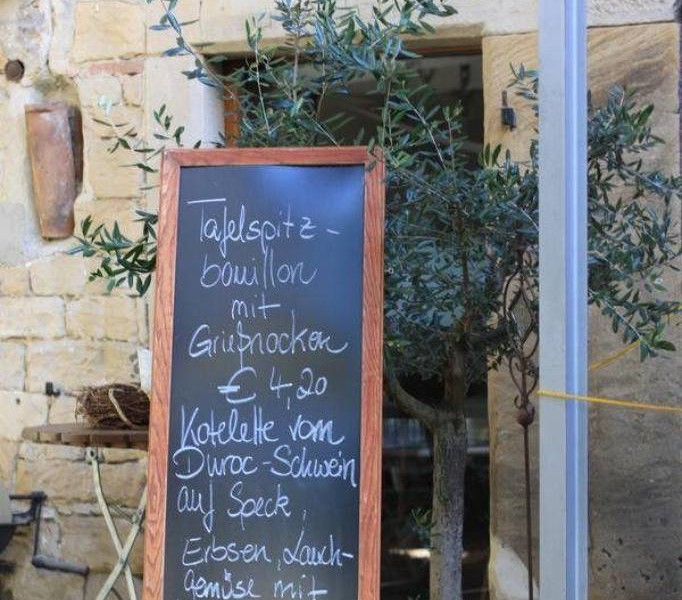 Tafelspitz-
bouillon
mit
Grießnocken
€ 4,20
Kotelette vom
Duroc-Schwein
auf Speck,
Erbsen, Lauch-
gemüse mit